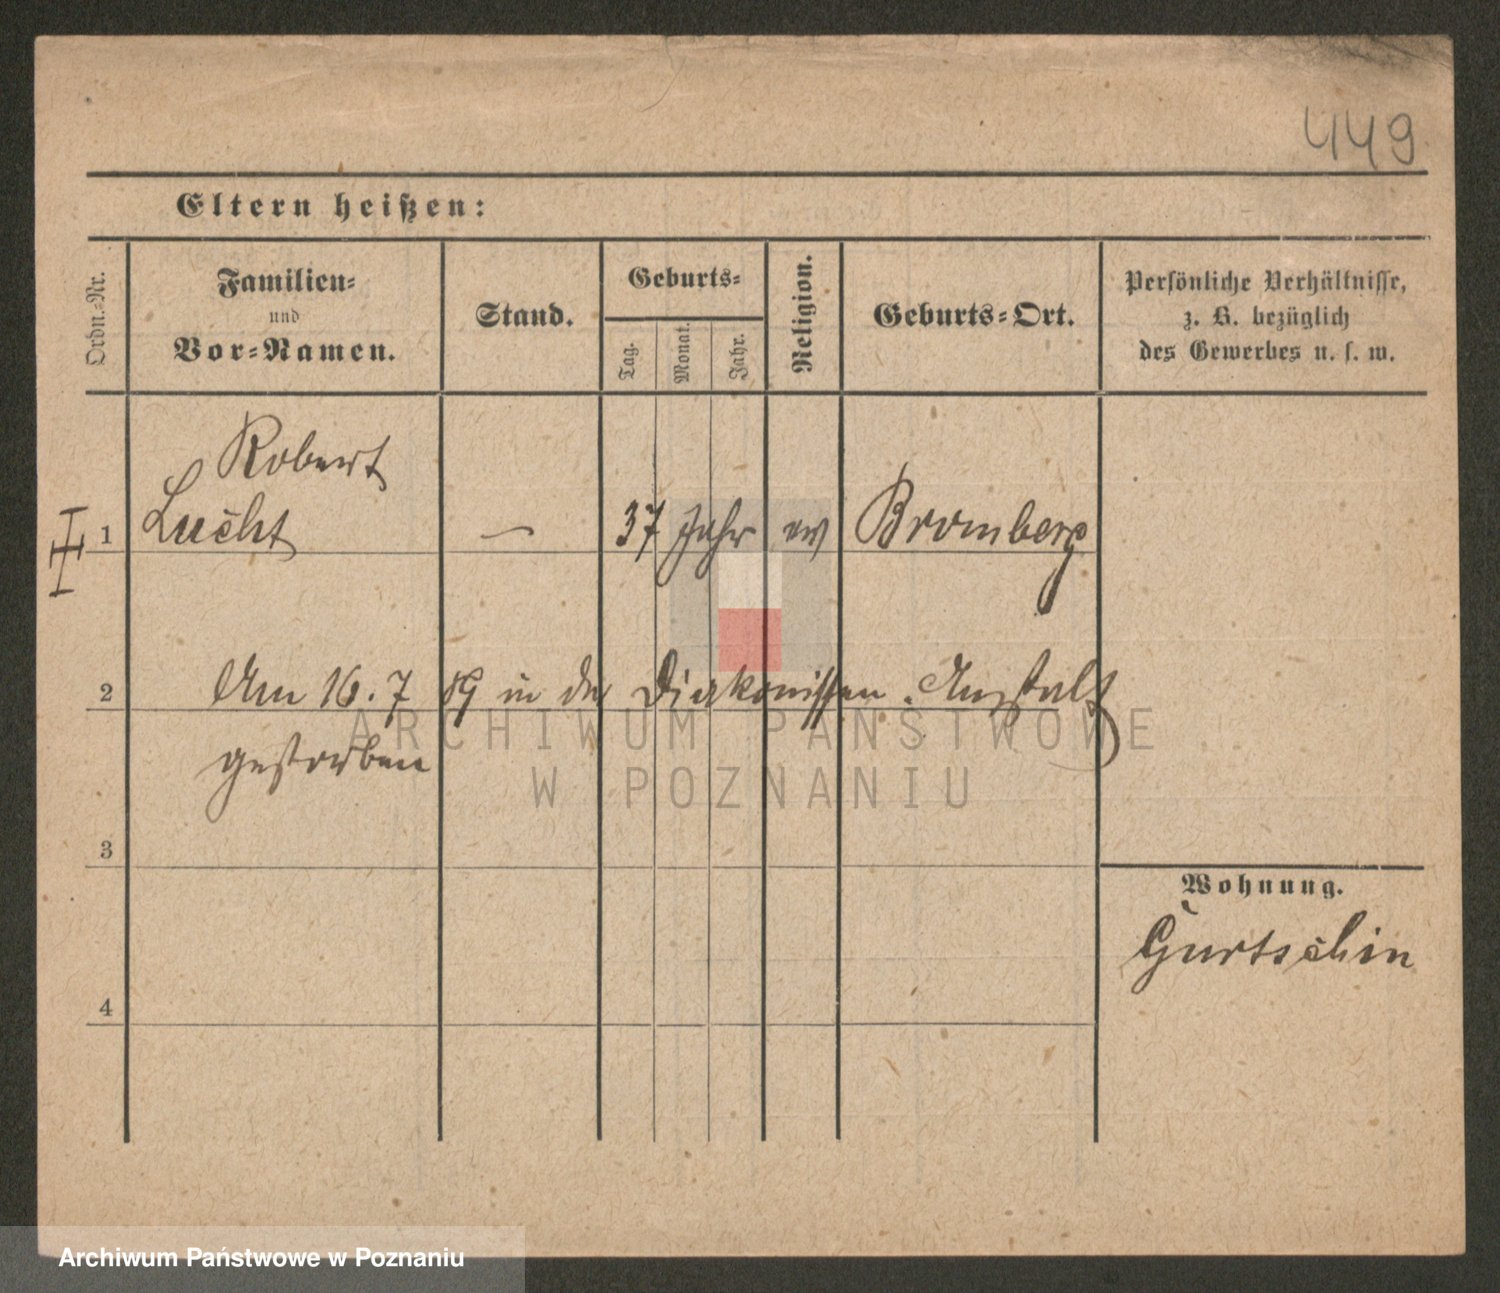 449
Eltern heißen:
Ordn.-Nr.
Familien-
und
Vor-Namen.
Stand.
Geburts-
Tag.
Monat.
Jahr.
Religion.
Geburts-Ort.
Persönliche Verhältnisse,
z. B. bezüglich
des Gewerbes u. s. w.
Robert
1 Lucht — 37 Jahr ev Bromberg
2 Am 16. 7 89 in der Diakonissen. Anstalt
gestorben
ARCHIWUM PAŃSTWOWE
W POZNANIU
3
Wohnung.
Gurtschin
4
Archiwum Państwowe w Poznaniu